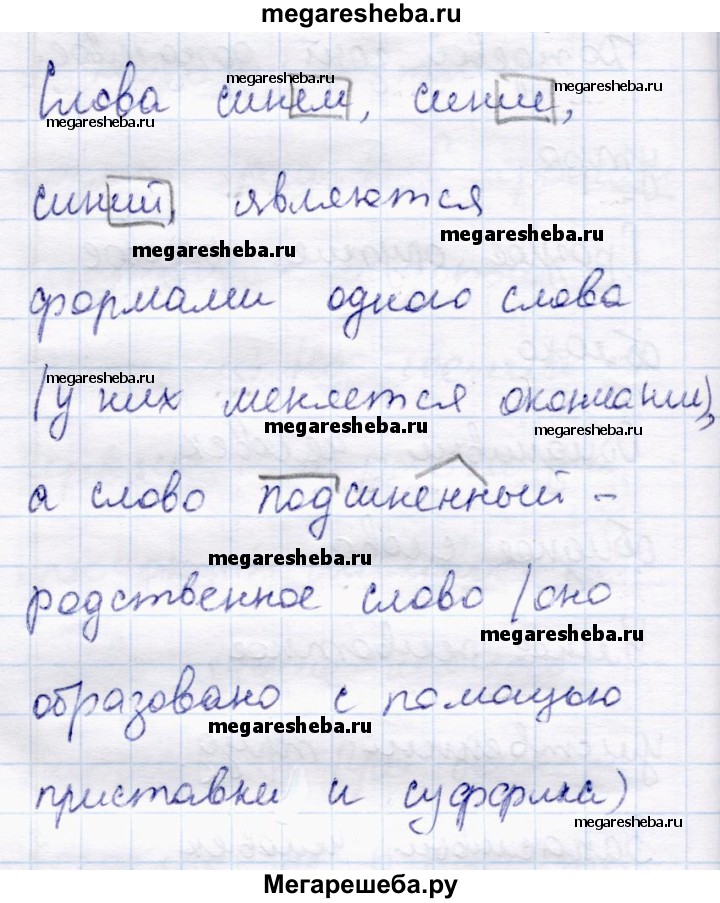 megaresheba.ru
Слова синем, синие,
megaresheba.ru
megaresheba.ru
megaresheba.ru
синий являются
megaresheba.ru
megaresheba.ru
формами одного слова
megaresheba.ru
(у них меняется окончании),
megaresheba.ru
megaresheba.ru
а слово подсиненный –
megaresheba.ru
родственное слово (оно
megaresheba.ru
образовано с помощью
megaresheba.ru
приставки и суффикса)
megaresheba.ru
Мегарешеба.ру